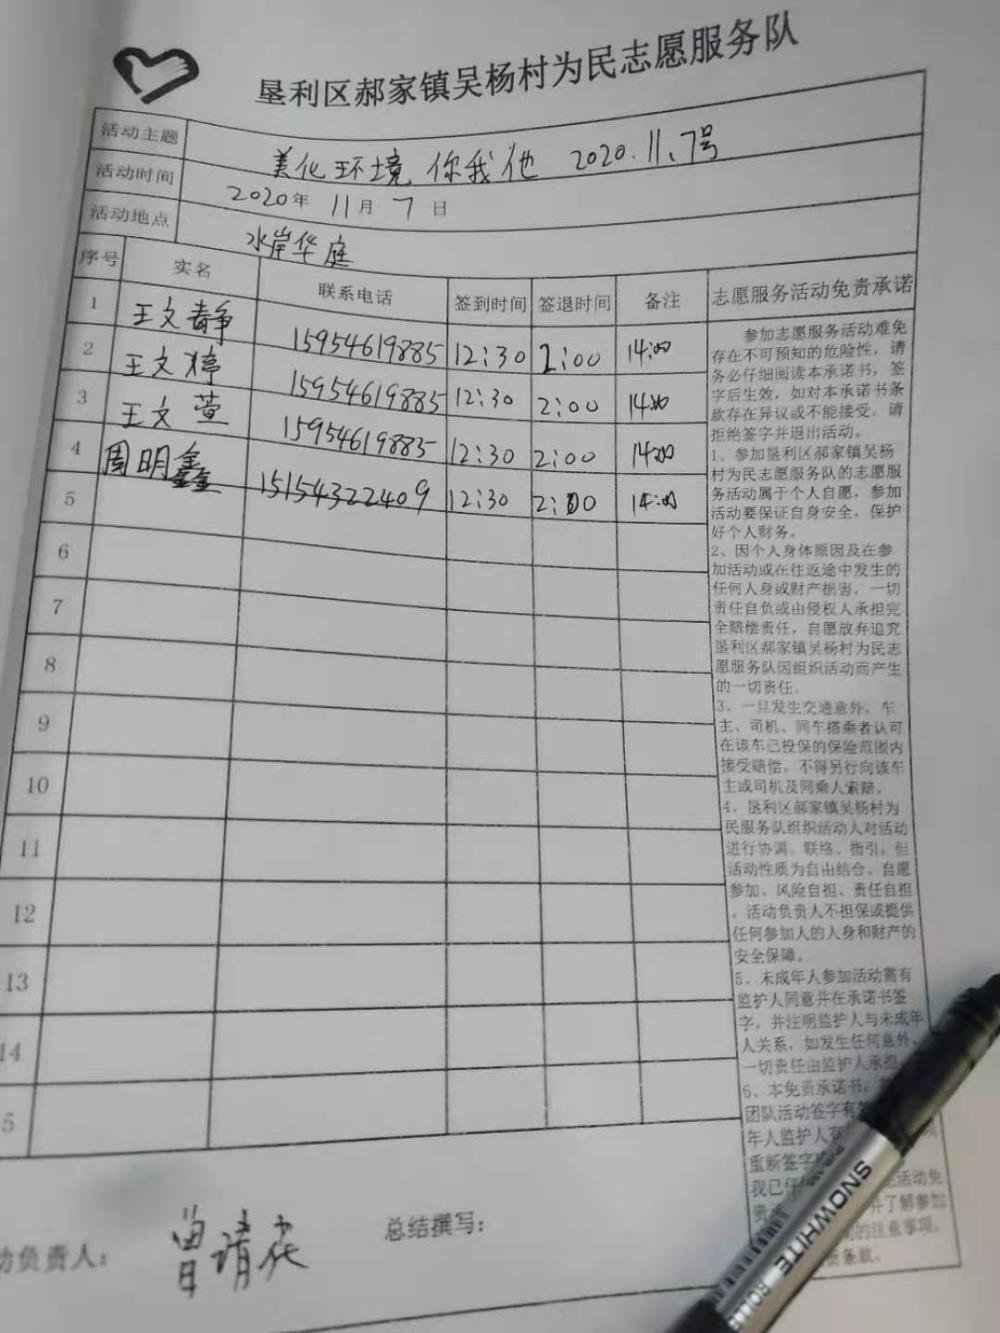 垦利区郝家镇吴杨村为民志愿服务队
活动主题 美化环境 你我他 2020.11.7号
活动时间 2020年 11月 7日
活动地点 水岸华庭
序号 实名 联系电话 签到时间 签退时间 备注 志愿服务活动免责承诺
1 王文静 15954619885 12:30 2:00 14:00
2 王文婷 15954619885 12:30 2:00 14:00
3 王文萱 15954619885 12:30 2:00 14:00
4 周明鑫 15154322409 12:30 2:00 14:00
5
6
7
8
9
10
11
12
13
14
5
参加志愿服务活动难免
存在不可预知的危险性，请
务必仔细阅读本承诺书，签
字后生效，如对本承诺书条
款存在异议或不能接受，请
拒绝签字并退出活动。
1、参加垦利区郝家镇吴杨
村为民志愿服务队的志愿服
务活动属于个人自愿，参加
活动要保证自身安全，保护
好个人财务。
2、因个人身体原因及在参
加活动或在往返途中发生的
任何人身或财产损害，一切
责任自负或由侵权人承担完
全赔偿责任，自愿放弃追究
垦利区郝家镇吴杨村为民志
愿服务队因组织活动而产生
的一切责任。
3、一旦发生交通意外，车
主、司机、同车搭乘者认可
在该车已投保的保险范围内
接受赔偿。不得另行向该车
主或司机及同乘人索赔。
4、垦利区郝家镇吴杨村为
民服务队组织活动人对活动
进行协调、联络、指引，但
活动性质为自由结合、自愿
参加、风险自担、责任自担
。活动负责人不担保或提供
任何参加人的人身和财产的
安全保障。
5、未成年人参加活动需有
监护人同意并在承诺书签
字，并注明监护人与未成年
人关系，如发生任何意外，
一切责任由监护人承担
6、本免责承诺书，
团队活动签字有
年人监护人有
重新签字
我已仔 活动免
责 并了解参加
的注意事项，
条款。
动负责人： 曾请花 总结撰写：
SNOWHITE ROLLE